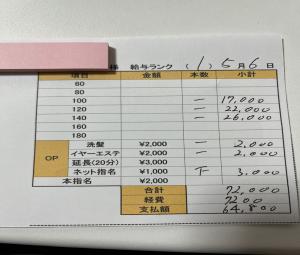 様 給与ランク (1) 5月6日
項目 金額 本数 小計
60
80
100 一 17,000
120 一 22,000
140 一 26,000
160
180
OP 洗髪 ¥2,000 一 2,000
イヤーエステ ¥2,000 一 2,000
延長(20分) ¥3,000
ネット指名 ¥1,000 下 3,000
本指名 ¥2,000
合計 72,000
経費 7200
支払額 64,800